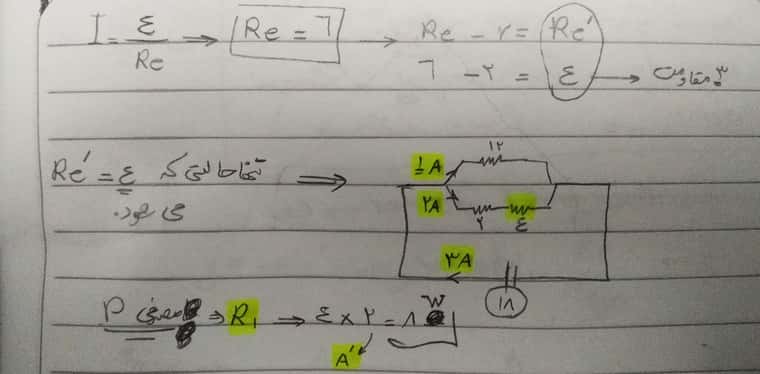 I = ε/Re → Re = ٦ → Re - ٢ = Re'
٦ - ٢ = ٤ → ٣ مقاومت
Re' = ٤ تنها حالتی که ⇒
می‌شود.
١٢
١A
٢A
٢ ٤
٣A
١٨
P مصرفی ⇒ R₁ → ٤ × ٢ = ٨ W
A'